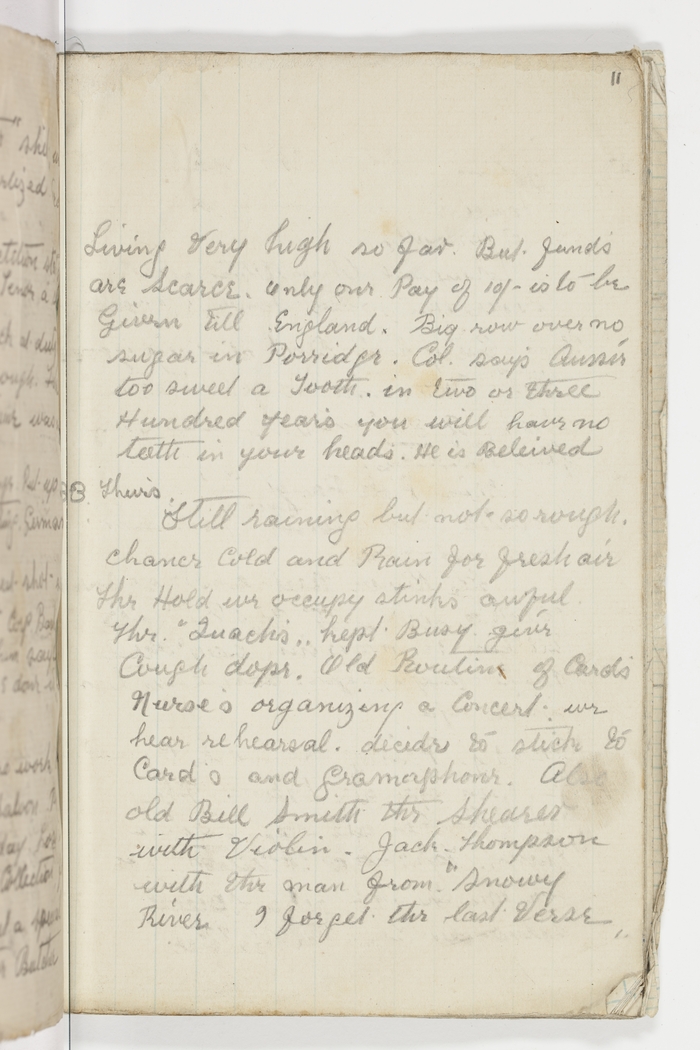 11
Living Very high so far. But funds
are Scarce. only our Pay of 1/- is to be
Givern till England. Big row over no
sugar in Porridge. Col. says Aussie
too sweet a Tooth. in two or three
Hundred years you will have no
teeth in your heads. He is Beleived
Thurs.
Still raining but not so rough.
chance Cold and Rain for fresh air
The Hold we occupy stinks awful.
The "Quack's,, kept Busy give
Cough dope. Old Routine of Cards
Nurse's organizing a Concert. we
hear rehearsal. decide to stick to
Card's and Gramaphone. Also
old Bill Smith the Shearer
with Violin - Jack Thompson
with the man from "Snowy
River. I forget the last Verse,,